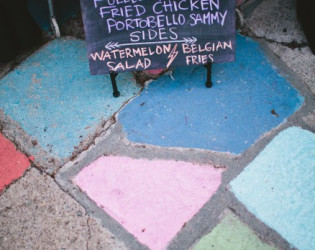 FRIED CHICKEN
PORTOBELLO SAMMY
SIDES
WATERMELON BELGIAN
SALAD FRIES